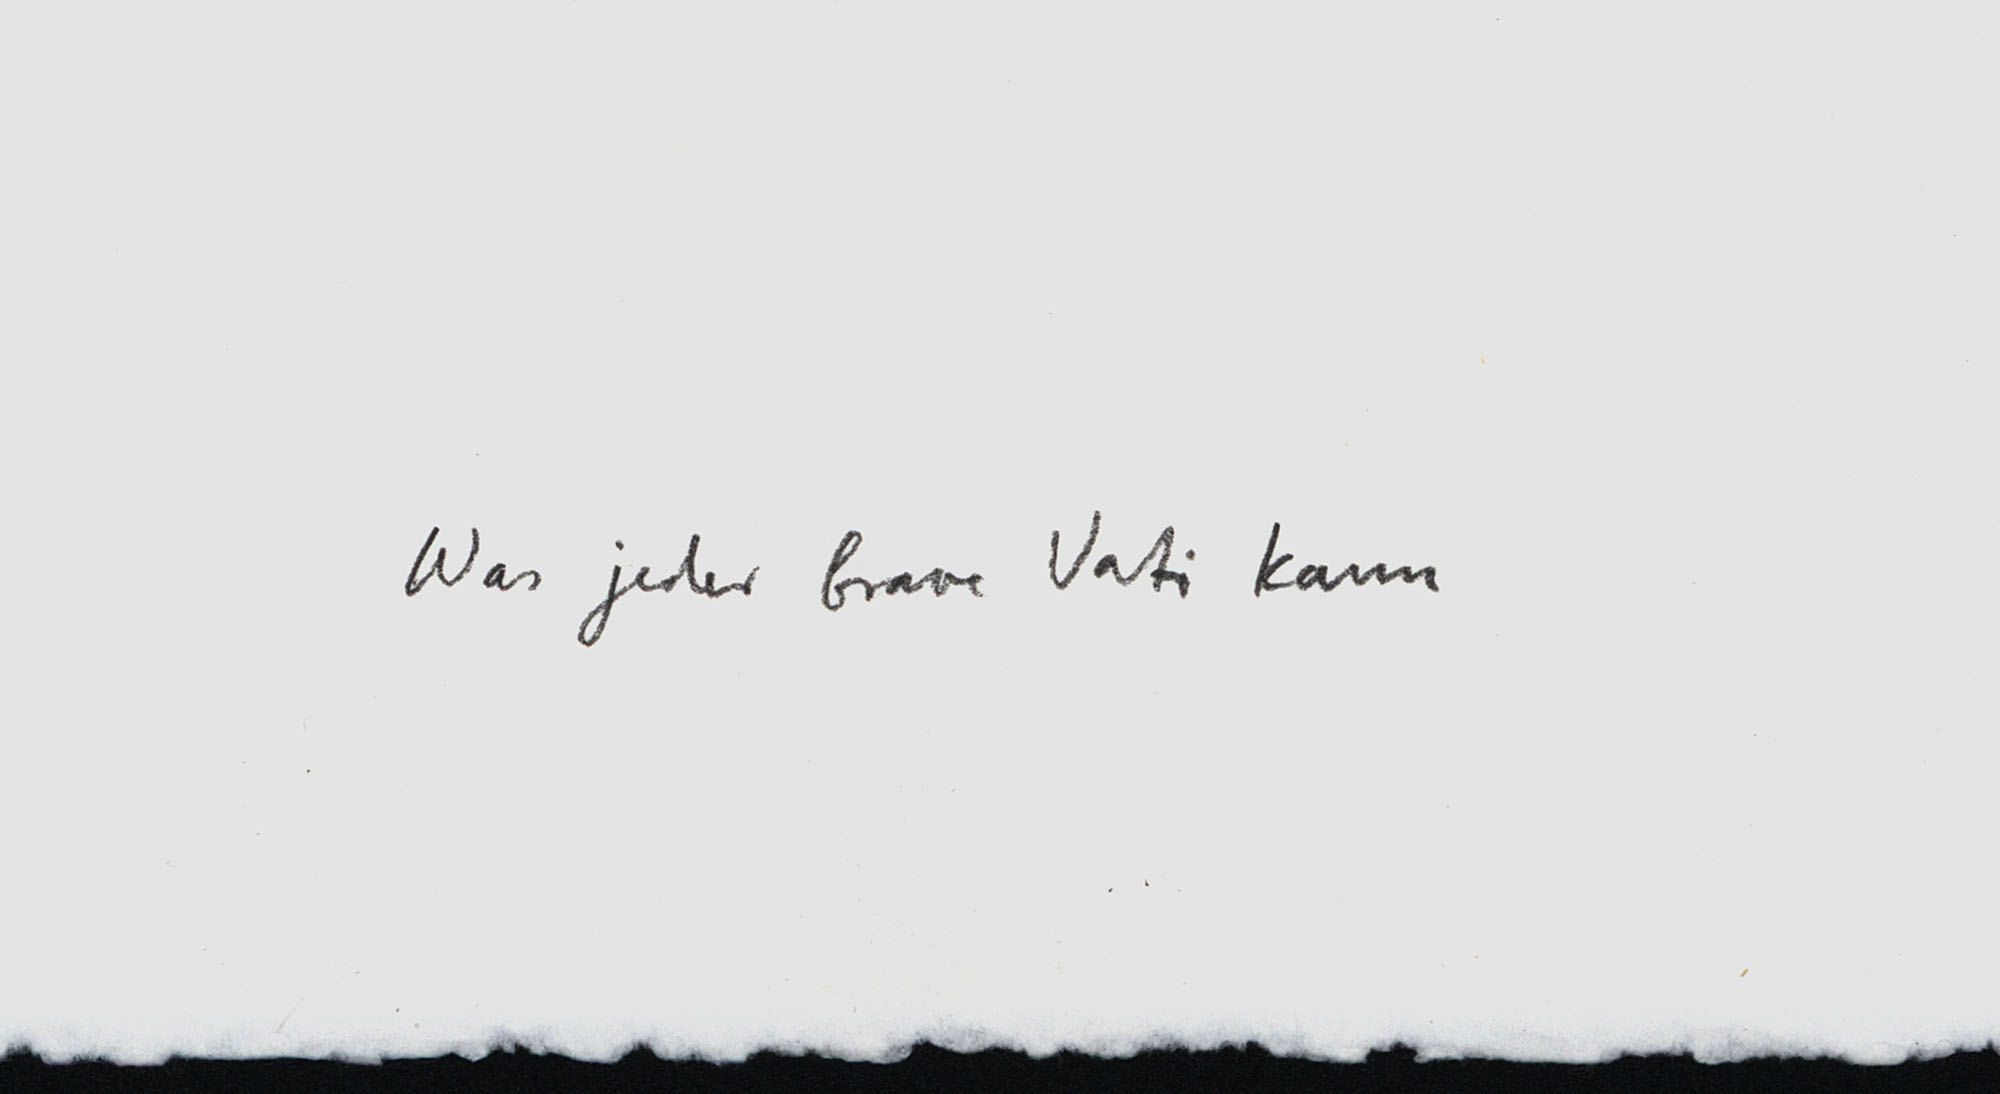 Was jeder brave Vati kann